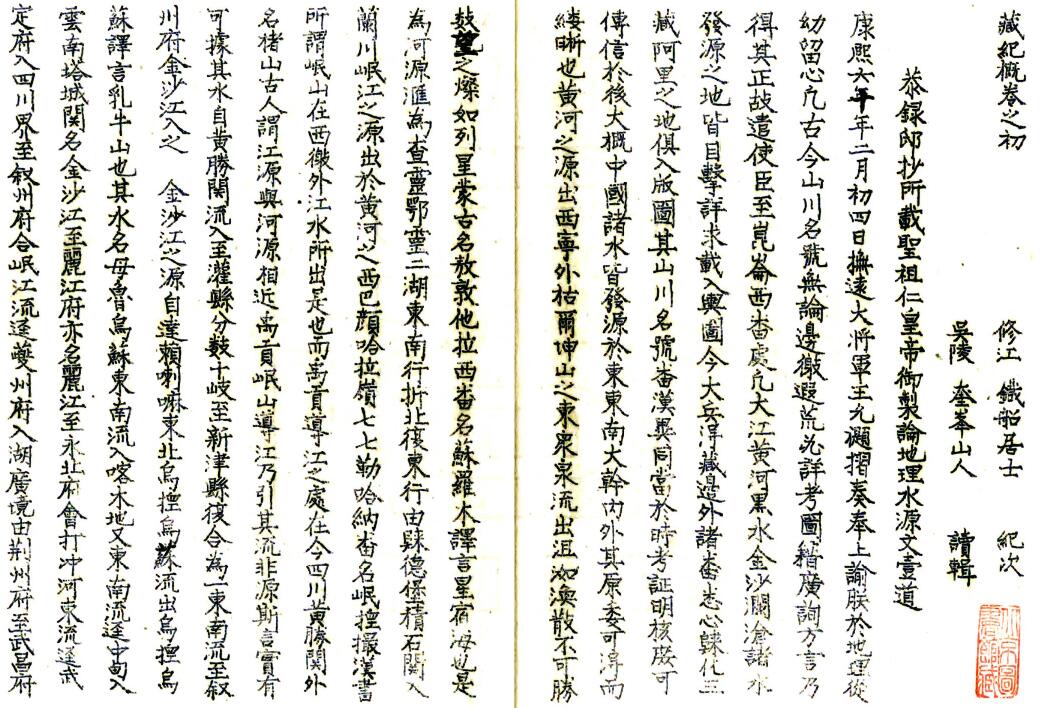 藏紀概卷之初
修江 鐵船居士 紀次
吳陵 奎峯山人 讀輯
恭録邸抄所載聖祖仁皇帝御製論地理水源文壹道
康熙六年年二月初四日撫遠大將軍王允禵摺奏奉上諭朕於地理從
幼留心凢古今山川名號無論邊徼遐荒必詳考圖籍廣詢方言乃
得其正故遣使臣至崑崙西畨處凢大江黄河黒水金沙瀾滄諸水
發源之地皆目擊詳求載入輿圖今大兵淂藏邉外諸畨悉心歸化三
藏阿里之地俱入版圖其山川名號畨漢異同當於時考証明核庻可
傳信於後大概中國諸水皆發源於東東南大幹内外其原委可淂而
縷晰也黄河之源出西寧外枯爾坤山之東衆泉流出沮洳渙散不可勝
数望之燦如列星蒙古名敖敦他拉西畨名蘇羅木譯言星宿海也是
為河源滙為查靈鄂靈二湖東南行折北復東行由歸德堡積石関入
蘭川岷江之源出於黄河之西巴顔哈拉嶺七七勒哈納畨名岷捏撮漢書
所謂岷山在西徼外江水所出是也而禹貢導江之處在今四川黄勝関外
名楮山古人謂江源與河源相近禹貢岷山導江乃引其流非原斯言實有
可據其水自黄勝関流入至灌縣分数十岐至新津縣復合為一東南流至叙
川府金沙江入之 金沙江之源自達賴喇嘛東北烏捏烏蘇流出烏捏烏
蘇譯言乳牛山也其水名母魯烏蘇東南流入喀木地又東南流逕中甸入
雲南塔城関名金沙江至麗江府亦名麗江至永北府會打冲河東流逕武
定府入四川界至叙州府合岷江流逕夔州府入湖廣境由荆州府至武昌府